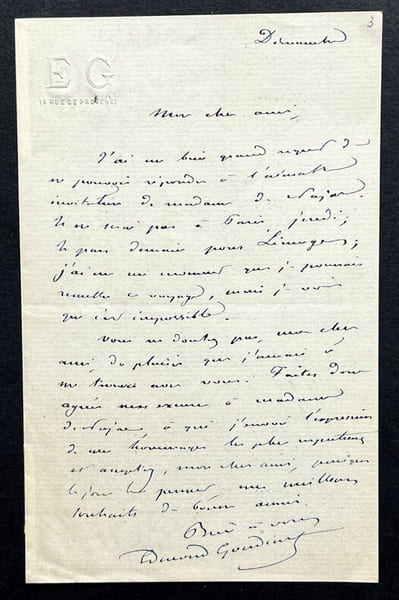 3
Dimanche
E G
14 RUE DE PROVENCE
Mon cher ami,
J'ai un bien grand regret de
ne pouvoir répondre à l'aimable
invitation de madame de Najac.
Je ne serai pas à Paris jeudi;
Je pars demain pour Limoges;
j'ai cru un moment que je pourrais
remettre ce voyage, mais je vois
que c'est impossible.
Vous ne doutez pas, mon cher
ami, du plaisir que j'aurais à
me trouver avec vous. Faites donc
agréer mes excuses à madame
de Najac à qui j'envoie l'expression
de mes hommages les plus respectueux
et acceptez, mon cher ami, puisque
le jour le permet, mes meilleurs
souhaits de bonne année.
Bien à vous
Edmond Gondinet